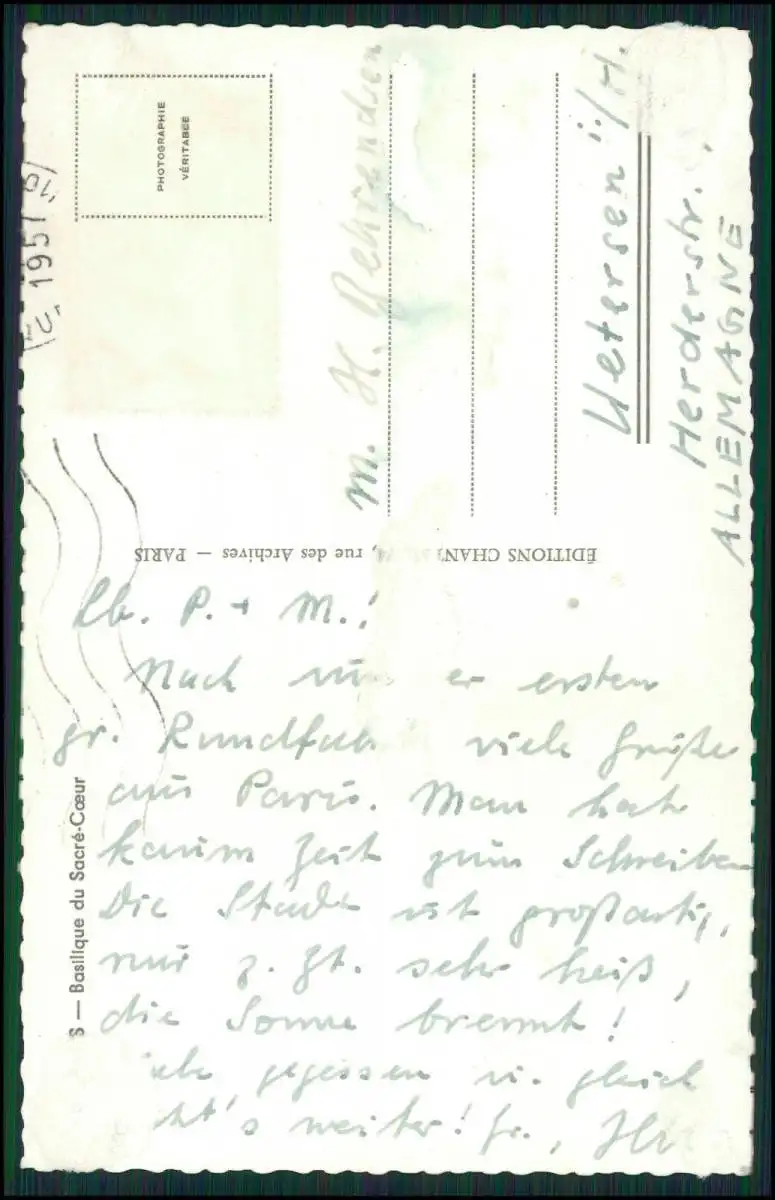 PHOTOGRAPHIE
VÉRITABLE
1957
M. H. Behrendsen
Uetersen i./H.
Herderstr.
ALLEMAGNE
ÉDITIONS CHAN rue des Archives — PARIS
S — Basilique du Sacré-Cœur
Lb. P. + M.!
Nach er ersten
gr. Rundfah viele Grüße
aus Paris. Man hat
kaum Zeit zum Schreiben
Die Stadt ist großartig,
nur z. Zt. sehr heiß,
die Sonne brennt!
gegessen u. gleich
ht's weiter! Gr.,